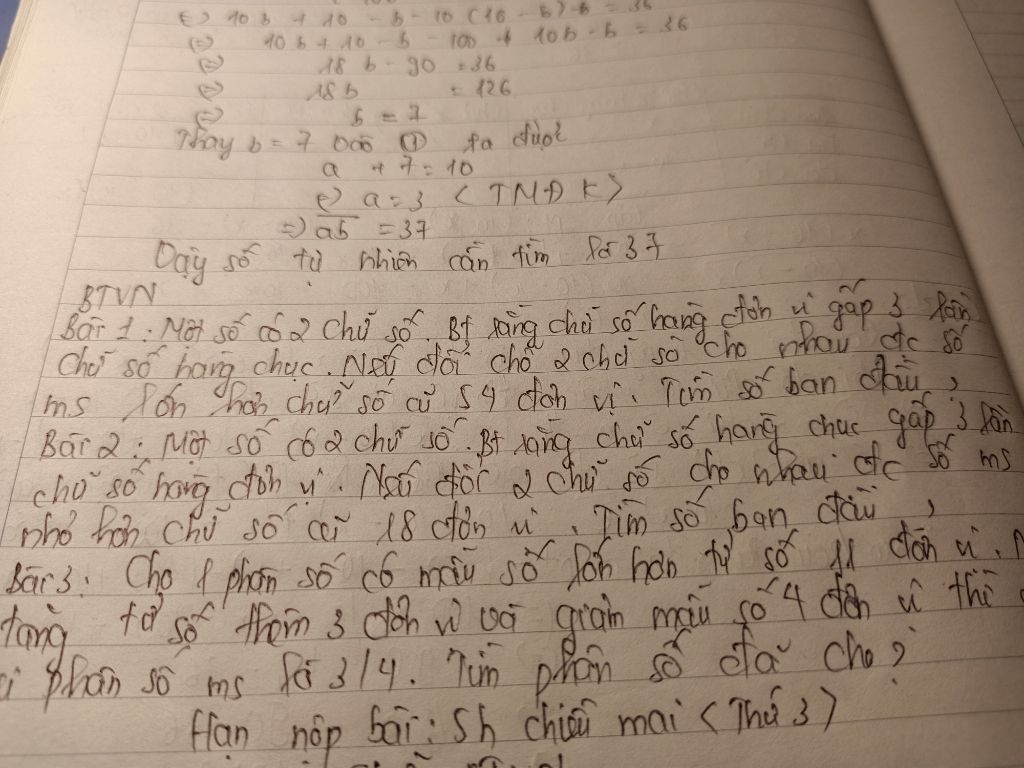 ⇔ 10b + 10 - b - 10(10 - b) - b = 36
⇔ 10b + 10 - b - 100 + 10b - b = 36
⇔ 18b - 90 = 36
⇔ 18b = 126
⇔ b = 7
Thay b = 7 vào ① ta được
a + 7 = 10
⇔ a = 3 (TMĐK)
=> ab = 37
Vậy số tự nhiên cần tìm là 37
BTVN
Bài 1: Một số có 2 chữ số. Bt rằng chữ số hàng đơn vị gấp 3 lần
chữ số hàng chục. Nếu đổi chỗ 2 chữ số cho nhau đc số
ms lớn hơn chữ số cũ 54 đơn vị. Tìm số ban đầu,
Bài 2: Một số có 2 chữ số. Bt rằng chữ số hàng chục gấp 3 lần
chữ số hàng đơn vị. Nếu đổi 2 chữ số cho nhau đc số ms
nhỏ hơn chữ số cũ 18 đơn vị. Tìm số ban đầu,
Bài 3: Cho 1 phân số có mẫu số lớn hơn tử số 11 đơn vị.
tăng tử số thêm 3 đơn vị và giảm mẫu số 4 đơn vị thì
phân số ms là 3/4. Tìm phân số đã cho?
Hạn nộp bài: 5h chiều mai (Thứ 3)